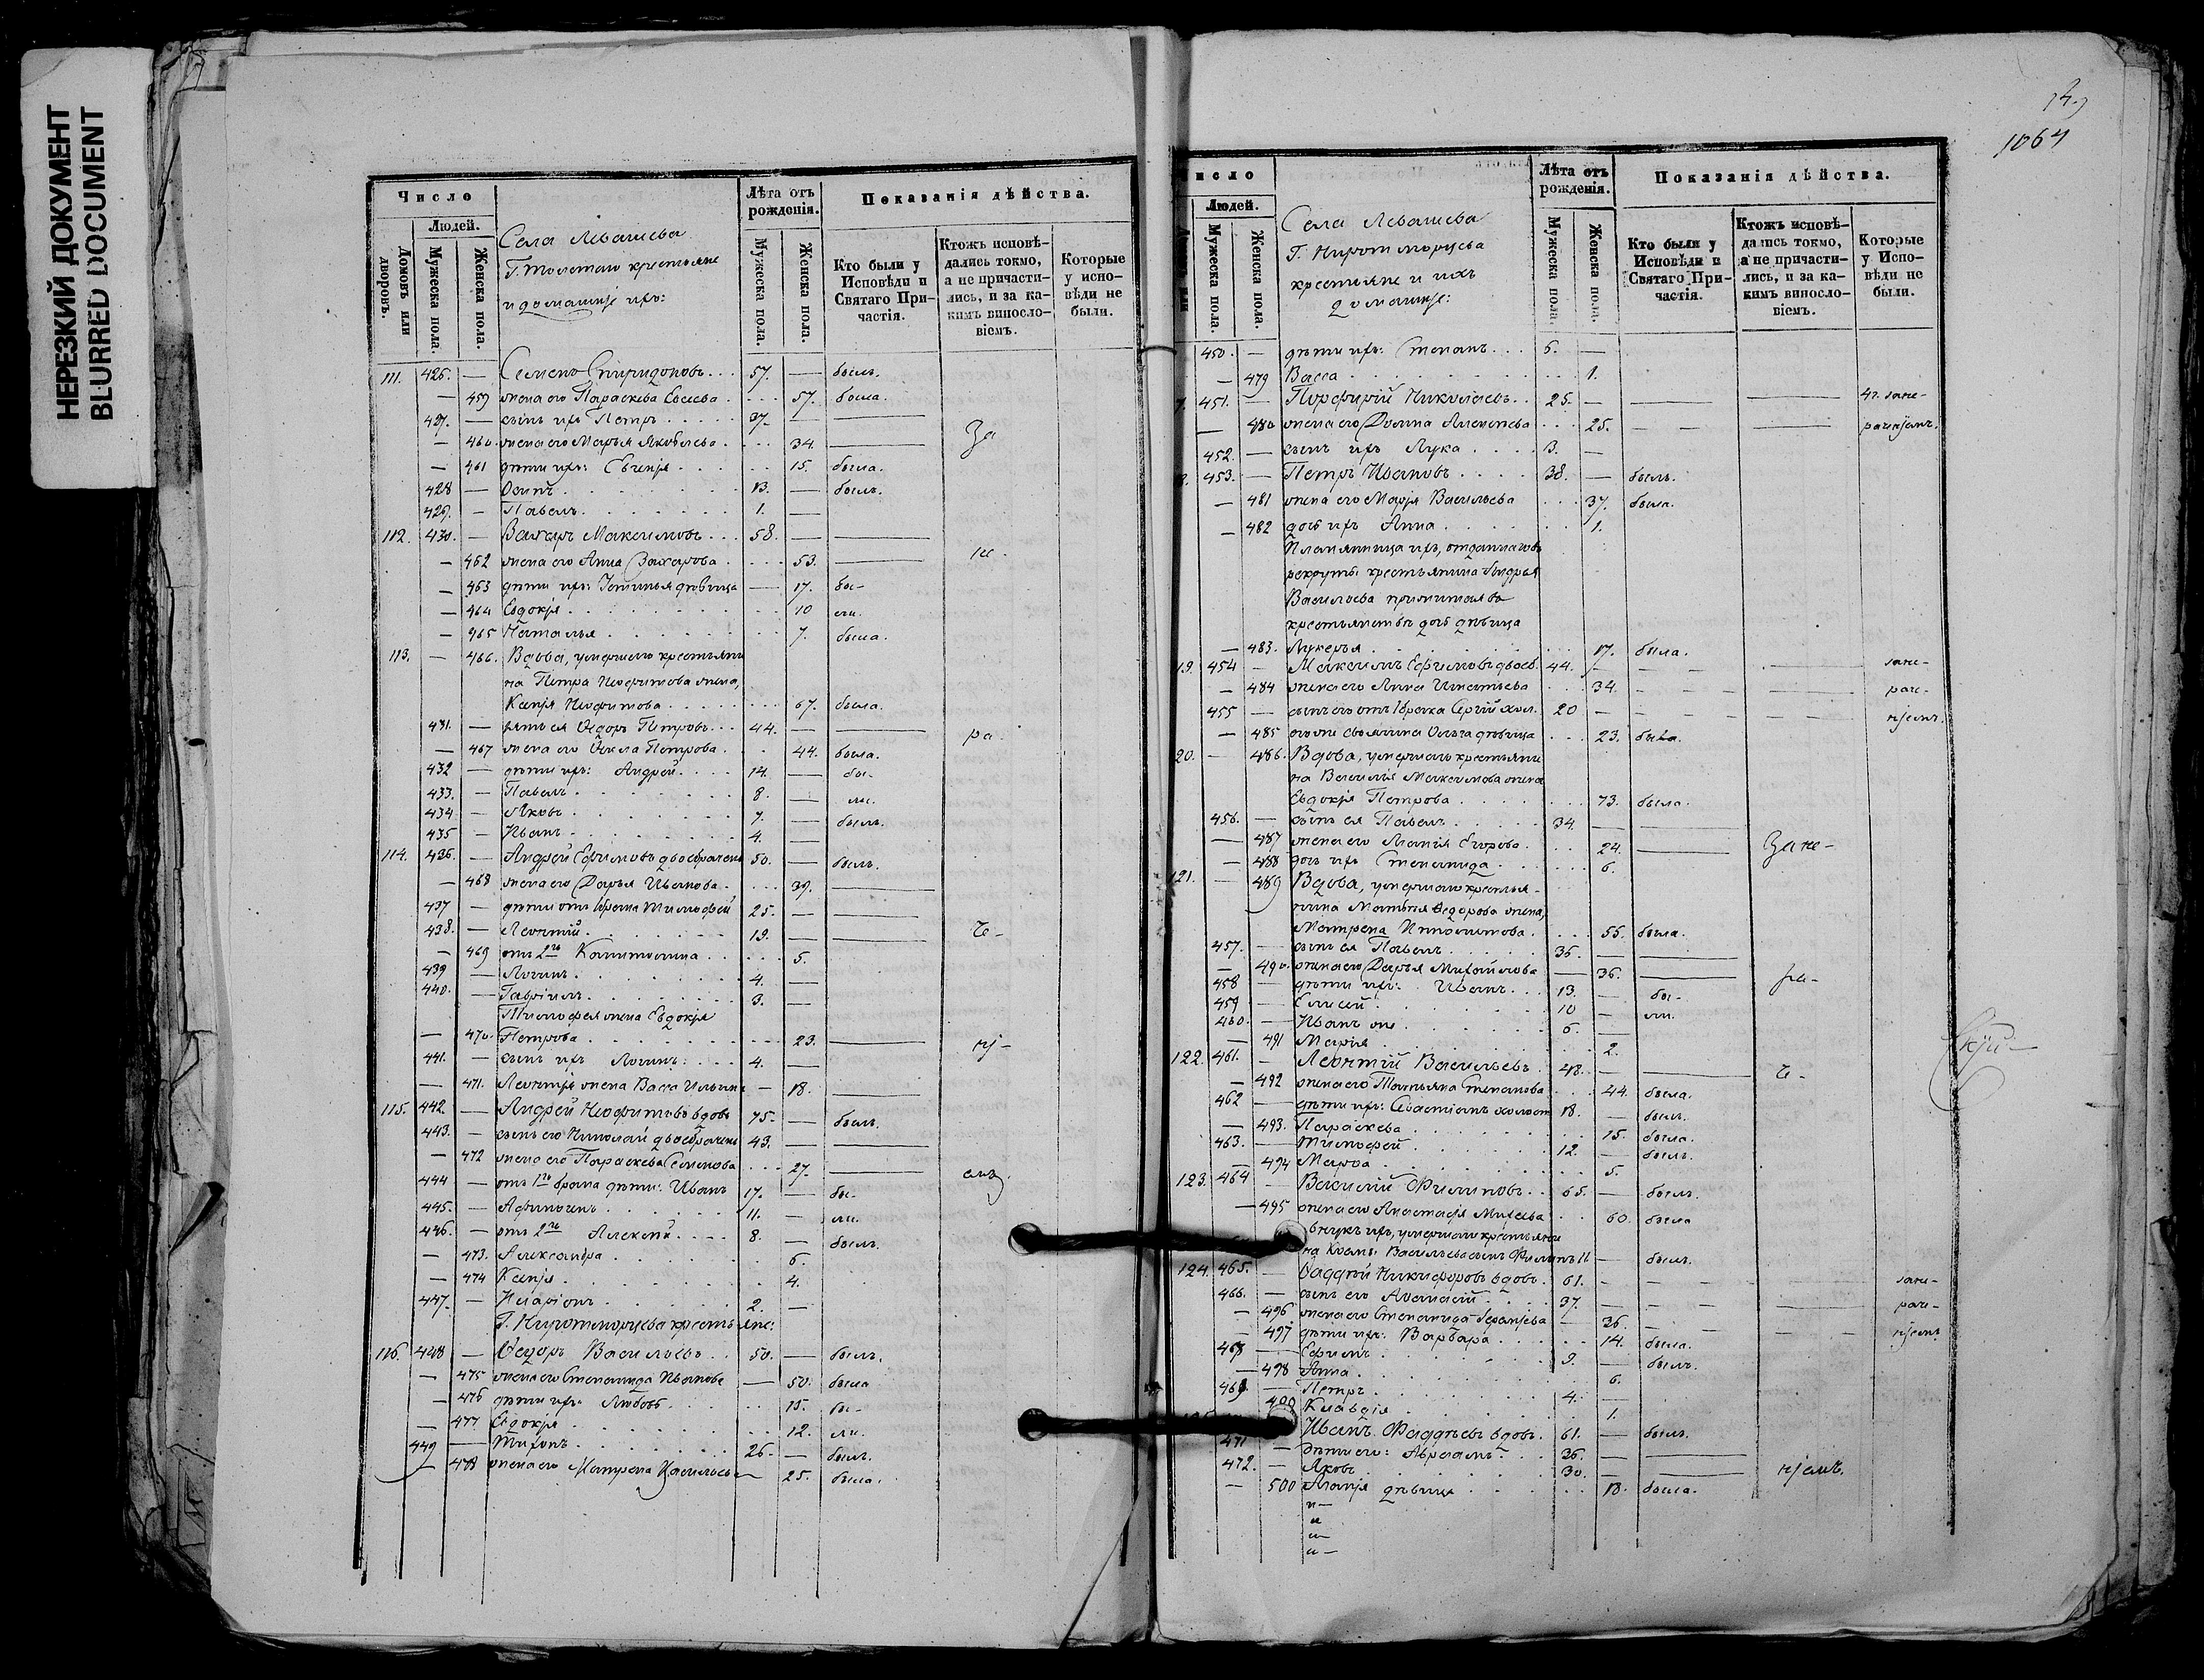 НЕРЕЗКИЙ ДОКУМЕНТ
BLURRED DOCUMENT
Число
Лѣта отъ рожденія.
Показанія дѣйства.
Людей.
Домовъ или дворовъ.
Мужеска пола.
Женска пола.
Села Левашева
Г. Толстаго крестьяне
и домашніе ихъ:
Мужеска пола.
Женска пола.
Кто были у Исповѣди и Святаго Причастія.
Ктожъ исповѣдались токмо, а не причастились, и за какимъ винословіемъ.
Которые у исповѣди не были.
111. 426. — Семенъ Спиридоновъ 57. — былъ.
— 459 жена его Параскева 57. была.
427. — сынъ ихъ Петръ 37. —
— 460. жена его Марья Яковлева 34. За
— 461 дѣти ихъ: Евгенія 15. была.
428 — Осипъ 13. — былъ.
429. — Павелъ 1. —
112. 430. — Захаръ Максимовъ 58. —
— 462 жена его Анна Захарова 53. не.
— 463 дѣти ихъ: Устинья дѣвица 17. бы-
— 464 Евдокія 10 ли.
— 465 Наталья 7. была.
113. — 466. Вдова, умершаго крестьяни
на Петра Неофитова жена,
Ксенія Неофитова 67. была.
431. — зять ея Ѳедоръ Петровъ 44. — ра-
— 467 жена его Ѳекла Петрова 44. была.
432 — дѣти ихъ: Андрей 14. — бы-
433. — Павелъ 8. — ли.
434 — Яковъ 7. — былъ.
435 — Иванъ 4. —
114. 436. — Андрей Ефимовъ двоебраченъ 50. — былъ.
— 468 жена его Дарья Иванова 39.
437 — дѣти отъ 1 брака Тимофей 25. —
438. — Леонтій 19. — че-
— 469 отъ 2го Капитолина 5.
439 — Логинъ 4. —
440. — Гавріилъ 3. —
Тимофея жена Евдокія
— 470. Петрова 23. ні-
441. — сынъ ихъ Логинъ 4. —
— 471. Леонтія жена Васса Ильина 18.
115. 442 — Андрей Неофитовъ вдовъ 75. — былъ.
443. — сынъ его Николай двоебраченъ 43. —
— 472 жена его Параскева Семенова 27. емъ.
444 — отъ 1го брака дѣти: Иванъ 17. — бы-
445. — Афиногенъ 11. — ли.
446. — отъ 2го Алексѣй 8. — былъ.
— 473. Александра 6.
— 474 Ксенія 4.
447. — Иларіонъ 2. —
Г. Киротморцева крестьяне:
116. 448 — Ѳедоръ Васильевъ 50. — былъ.
— 475 жена его Степанида Иванова 50. была
— 476 дѣти ихъ: Любовь 15. бы-
— 477 Евдокія 12. ли.
449 — Тихонъ 26. — былъ.
— 478 жена его Матрена Васильева 25. была.
1064
Число
Лѣта отъ рожденія.
Показанія дѣйства.
Людей.
Мужеска пола.
Женска пола.
Села Левашева
крестьяне и ихъ
домашніе:
Мужеска пола.
Женска пола.
Кто были у Исповѣди и Святаго Причастія.
Ктожъ исповѣдались токмо, а не причастились, и за какимъ винословіемъ.
Которые у Исповѣди не были.
450. — дѣти ихъ: Степанъ 5. —
— 479 Васса 1.
7. 451. — Порфирій Николаевъ 25. —
— 480 жена его Домна Алексѣева 25. раченіемъ.
452. — сынъ ихъ Лука 3. —
8. 453. — Петръ Ивановъ 38. — былъ.
— 481 жена его Марія Васильева 37. была.
— 482 дочь ихъ Анна 1.
Племянница ихъ, отданнаго въ
рекруты крестьянина Андрея
Васильева прижитая въ
крестьянствѣ дочь дѣвица
— 483. Лукерья 17. была.
19. 454 — Максимъ Ефимовъ двоеб. 44. — зане-
— 484 жена его Анна Игнатьева 34. раче-
455 — сынъ его отъ 1 брака Сергій хол. 20 — ніемъ.
— 485 его же своячина Ольга дѣвица 23. была.
20. — 486. Вдова, умершаго крестьяни
на Василія Максимова жена
Евдокія Петрова 73. была.
456. — сынъ ея Павелъ 34. —
— 487 жена его Марія Егорова 24. Зане-
— 488 дочь ихъ Степанида 6.
121. — 489 Вдова, умершаго крестья-
нина Матвѣя Ѳедорова жена,
Матрена Ипполитова 55. была.
457. — сынъ ея Павелъ 36. —
— 490. жена его Дарья Михайлова 36. ра-
458 — дѣти ихъ: Иванъ 13. — бы-
459 — Елисей 10 — ли.
460. — Иванъ же 6 —
— 491 Марія 2.
122. 461. — Леонтій Васильевъ 48. — че-
— 492 жена его Татьяна Степанова 44. была.
462 — дѣти ихъ: Севастіанъ холост 18. — былъ.
— 493. Параскева 15. была.
463. — Тимофей 12. — былъ.
— 494 Марѳа 5.
123. 464 — Василій Филиповъ 65. — былъ.
— 495 жена его Анастасія Михеева 60. была
внукъ ихъ, умершаго крестьяни
на Козмы Васильева сынъ Филипъ 11 — былъ.
124. 465. — Ѳаддѣй Никифоровъ вдовъ. 61. — зане-
466. — сынъ его Аѳанасій 37. — раче-
— 496 жена его Степанида 36. ніемъ
— 497 дѣти ихъ: Варвара 14. была.
468 — Ефимъ 9. — былъ.
— 498 Анна 6.
469. — Петръ 4. —
499 Клавдія 1.
Иванъ Фаддѣевъ вдовъ. 61. — былъ.
471 — дѣти его: Авраамъ 36. —
472. — Яковъ 30. — ніемъ.
— 500 Марія дѣвица 18. была.